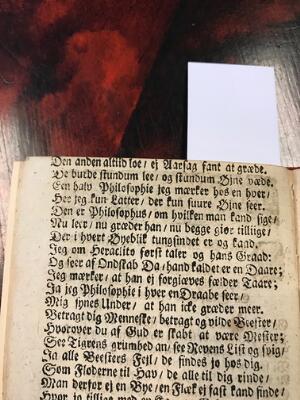 Den anden altid loe/ ej Aarsag fant at græde.
De burde stundum lee/ og stundum Øjne væde.
En halv Philosophie jeg mærker hos en hver/
Her jeg kun Latter/ der kun suure Øjne seer.
Den er Philosophus/ om hvilken man kand sige/
Nu leer/ nu græder han/ nu begge giør tillige/
Der i hvert Øyeblik tungsindet er og kaad.
Jeg om Heraclito først taler og hans Graad:
Og seer af Ondskab Da/ hand kaldet er en Daare;
Jeg mærker/ at han ej forgiæves fælder Taare;
Ja jeg Philosophie i hver en Draabe seer/
Mig synes Under/ at han icke græder meer.
Betragt dig Menneske/ betragt og vilde Beester/
Hvorover du af Gud er skabt at være Mester;
See Tigrens grumhed an/ see Revens List og svig/
Ja alle Beesters Fejl, de findes jo hos dig.
Som Floderne til Hav/ de alle til dig rinde/
Man derfor ej en Bye/ en Flæk ej fast kand finde/
Hvor jo tillige med en